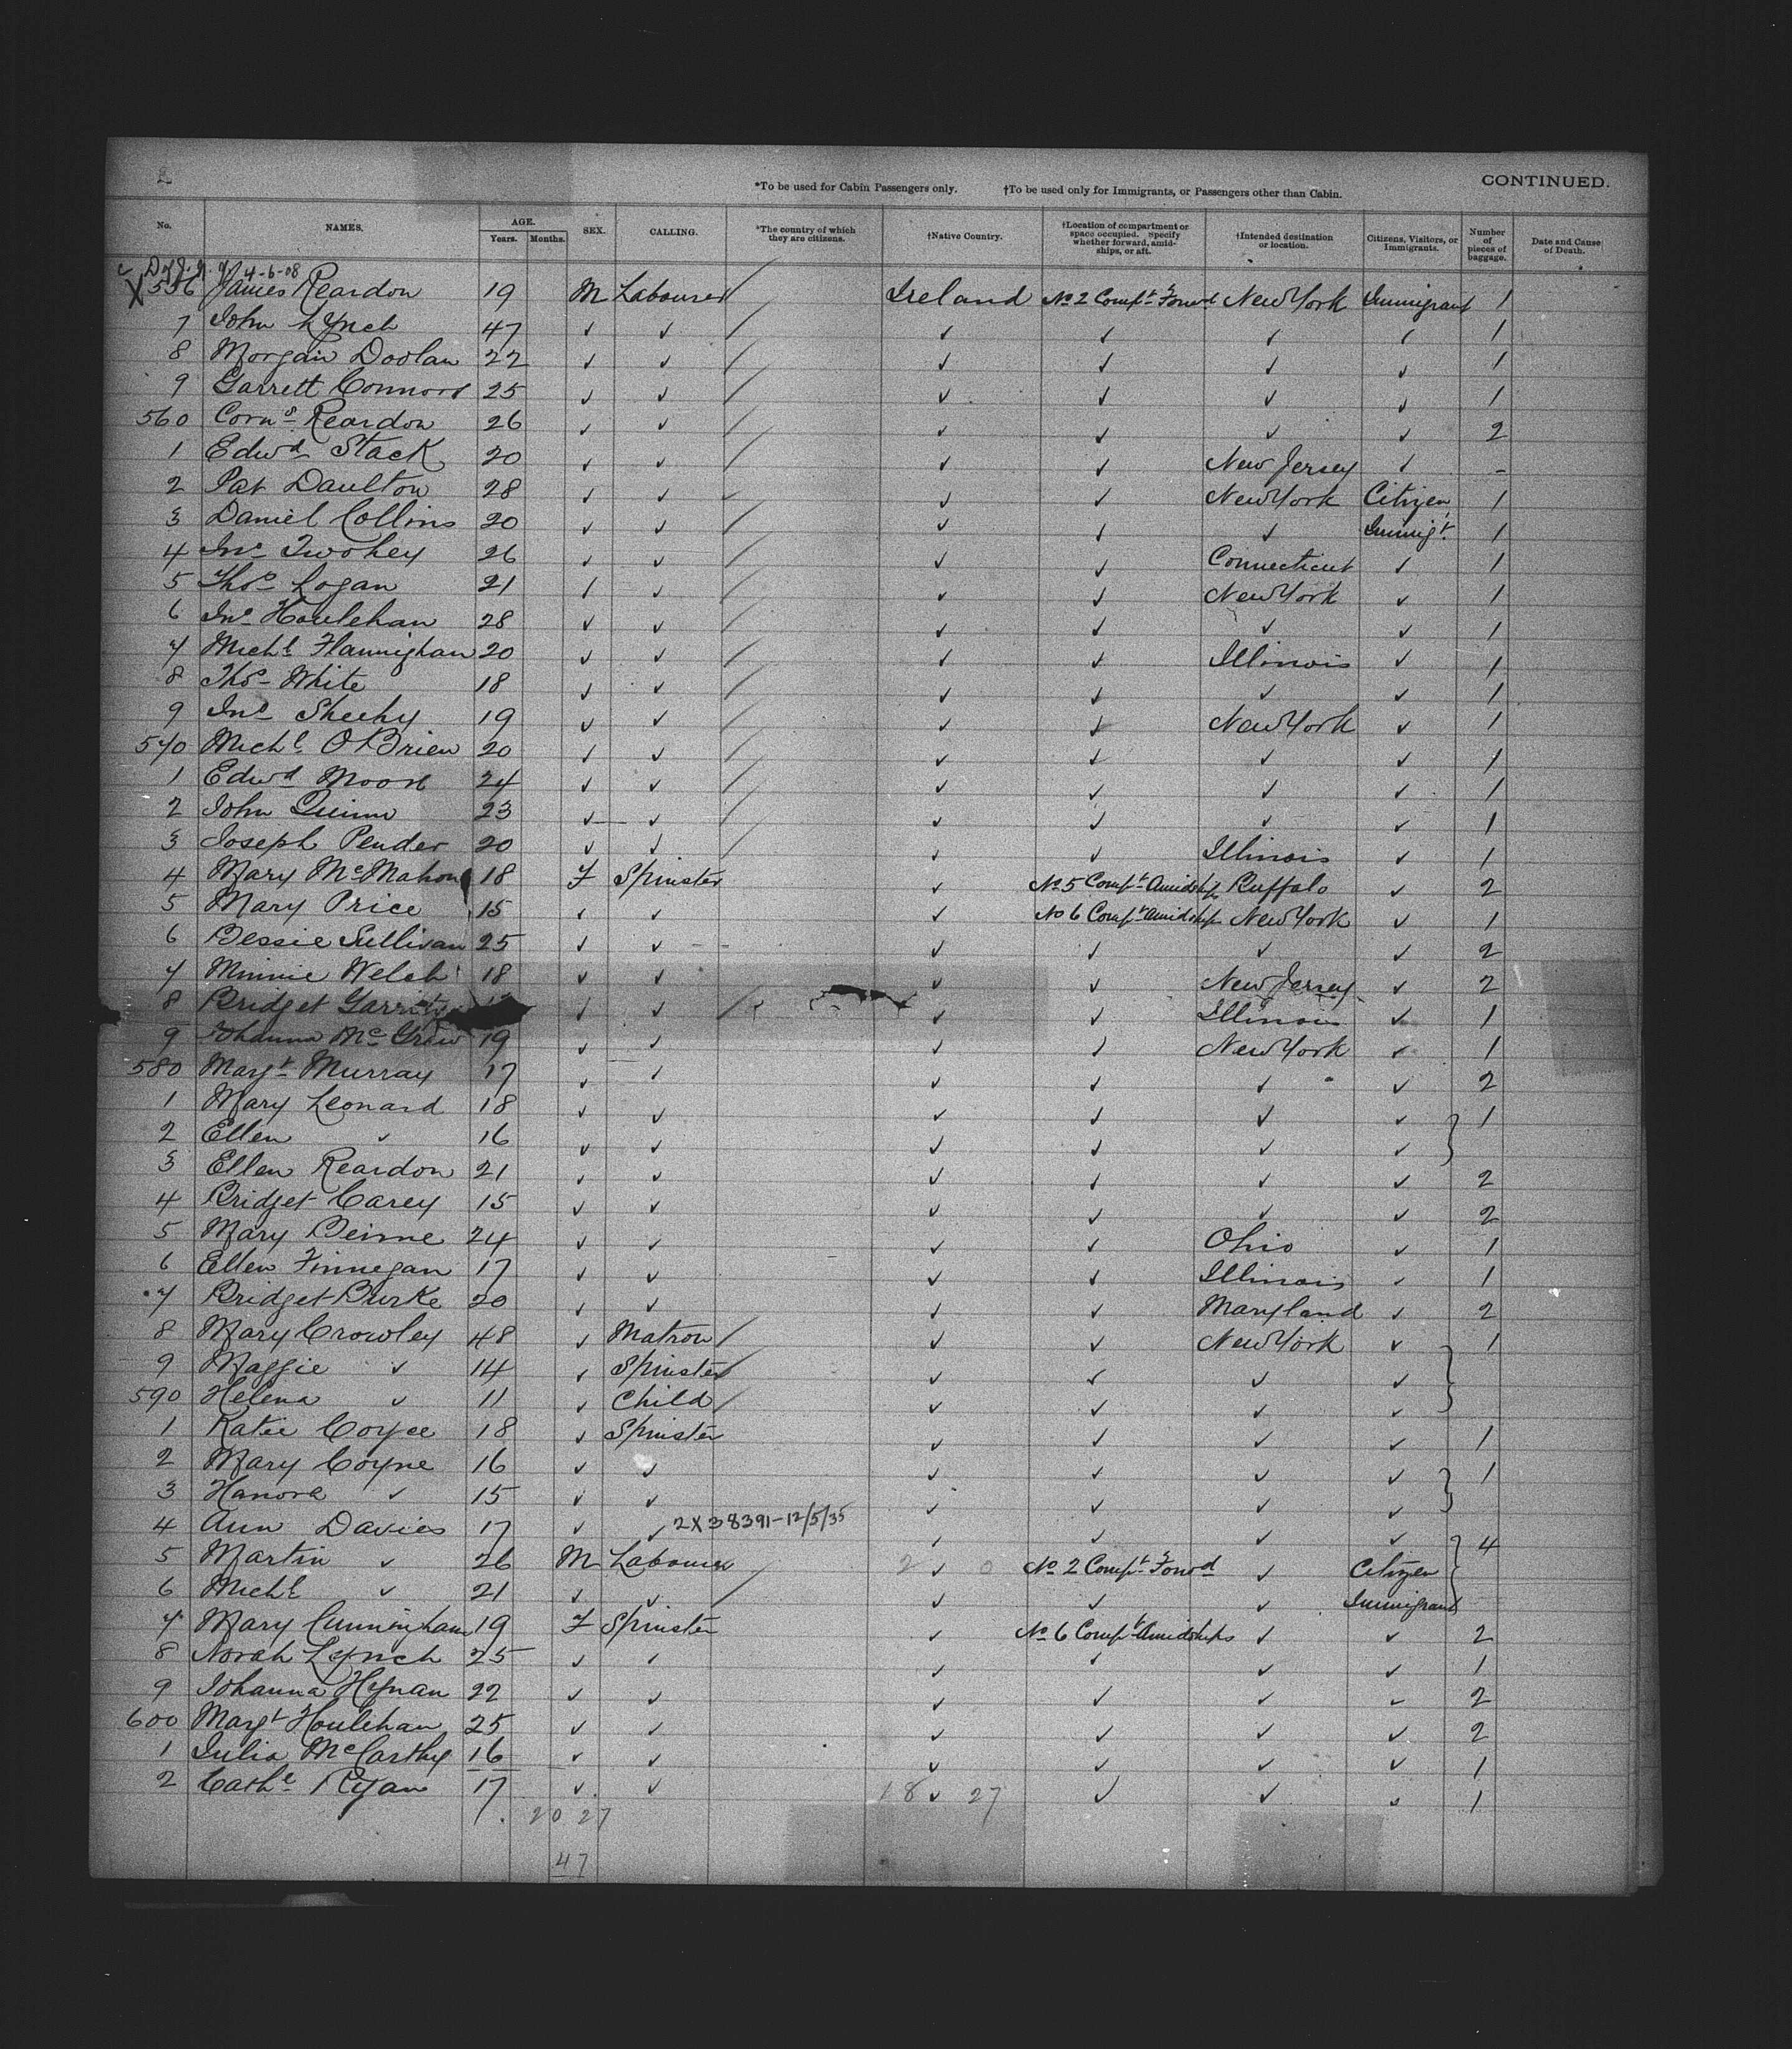 2
*To be used for Cabin Passengers only. †To be used only for Immigrants, or Passengers other than Cabin. CONTINUED.
No. NAMES. AGE. Years. Months. SEX. CALLING. *The country of which they are citizens. †Native Country. †Location of compartment or space occupied. Specify whether forward, amidships, or aft. †Intended destination or location. Citizens, Visitors, or Immigrants. Number of pieces of baggage. Date and Cause of Death.
4-6-08
X 556 James Reardon 19 M Labourer / Ireland No 2 Compt Forwd New York Immigrant 1
7 John Lynch 47 ✓ ✓ / ✓ ✓ ✓ ✓ 1
8 Morgan Doolan 22 ✓ ✓ / ✓ ✓ ✓ ✓ 1
9 Garrett Connors 25 ✓ ✓ / ✓ ✓ ✓ ✓ 1
560 Corns Reardon 26 ✓ ✓ / ✓ ✓ ✓ ✓ 2
1 Edwd Stack 20 ✓ ✓ / ✓ ✓ New Jersey ✓ -
2 Pat Daulton 28 ✓ ✓ ✓ ✓ New York Citizen 1
3 Daniel Collins 20 ✓ ✓ / ✓ ✓ ✓ Immigt 1
4 Jno Twohey 26 ✓ ✓ / ✓ ✓ Connecticut ✓ 1
5 Thos Logan 21 ✓ ✓ / ✓ ✓ New York ✓ 1
6 Jno Houlehan 28 ✓ ✓ / ✓ ✓ ✓ ✓ 1
7 Michl Flannighan 20 ✓ ✓ / ✓ ✓ Illinois ✓ 1
8 Thos White 18 ✓ ✓ / ✓ ✓ ✓ ✓ 1
9 Jno Sheehy 19 ✓ ✓ / ✓ ✓ New York ✓ 1
570 Michl O'Brien 20 ✓ ✓ / ✓ ✓ ✓ ✓ 1
1 Edwd Moore 24 ✓ ✓ / ✓ ✓ ✓ ✓ 1
2 John Quinn 23 ✓ ✓ / ✓ ✓ ✓ ✓ 1
3 Joseph Pender 20 ✓ ✓ / ✓ ✓ Illinois ✓ 1
4 Mary McMahon 18 F Spinster ✓ No 5 Compt Amidship Buffalo ✓ 2
5 Mary Price 15 ✓ ✓ ✓ No 6 Compt Amidship New York ✓ 1
6 Bessie Sullivan 25 ✓ ✓ ✓ ✓ ✓ ✓ 2
7 Minnie Welch 18 ✓ ✓ ✓ ✓ New Jersey ✓ 2
8 Bridget ✓ ✓ / ✓ ✓ Illinois ✓ 1
9 Johanna McGraw 19 ✓ ✓ ✓ ✓ New York ✓ 1
580 Margt Murray 17 ✓ ✓ ✓ ✓ ✓ ✓ 2
1 Mary Leonard 18 ✓ ✓ ✓ ✓ ✓ ✓ 1
2 Ellen ✓ 16 ✓ ✓ ✓ ✓ ✓ ✓
3 Ellen Reardon 21 ✓ ✓ ✓ ✓ ✓ ✓ 2
4 Bridget Carey 15 ✓ ✓ ✓ ✓ ✓ ✓ 2
5 Mary Beirne 24 ✓ ✓ ✓ ✓ Ohio ✓ 1
6 Ellen Finnegan 17 ✓ ✓ ✓ ✓ Illinois ✓ 1
7 Bridget Burke 20 ✓ ✓ ✓ ✓ Maryland ✓ 2
8 Mary Crowley 48 ✓ Matron / ✓ ✓ New York ✓ 1
9 Maggie ✓ 14 ✓ Spinster / ✓ ✓ ✓ ✓
590 Helena ✓ 11 ✓ Child / ✓ ✓ ✓ ✓
1 Katie 18 ✓ Spinster ✓ ✓ ✓ ✓ 1
2 Mary Coyne 16 ✓ ✓ ✓ ✓ ✓ ✓ 1
3 Hanora ✓ 15 ✓ ✓ ✓ ✓ ✓ ✓
4 Ann Davies 17 ✓ ✓ 2X38391-12/5/35 ✓ ✓ ✓ ✓ 4
5 Martin ✓ 26 M Labourer 2 ✓ 0 No 2 Compt Forwd ✓ Citizen
6 Michl ✓ 21 ✓ ✓ / ✓ ✓ ✓ Immigrant
7 Mary Cunningham 19 F Spinster ✓ No 6 Compt Amidships ✓ ✓ 2
8 Norah Lynch 25 ✓ ✓ ✓ ✓ ✓ ✓ 1
9 Johanna Hynan 22 ✓ ✓ ✓ ✓ ✓ ✓ 2
600 Margt Houlehan 25 ✓ ✓ ✓ ✓ ✓ ✓ 2
1 Julia McCarthy 16 ✓ ✓ ✓ ✓ ✓ ✓ 1
2 Cathe Ryan 17 ✓ ✓ 18 ✓ 27 ✓ ✓ ✓ 1
20 27
47